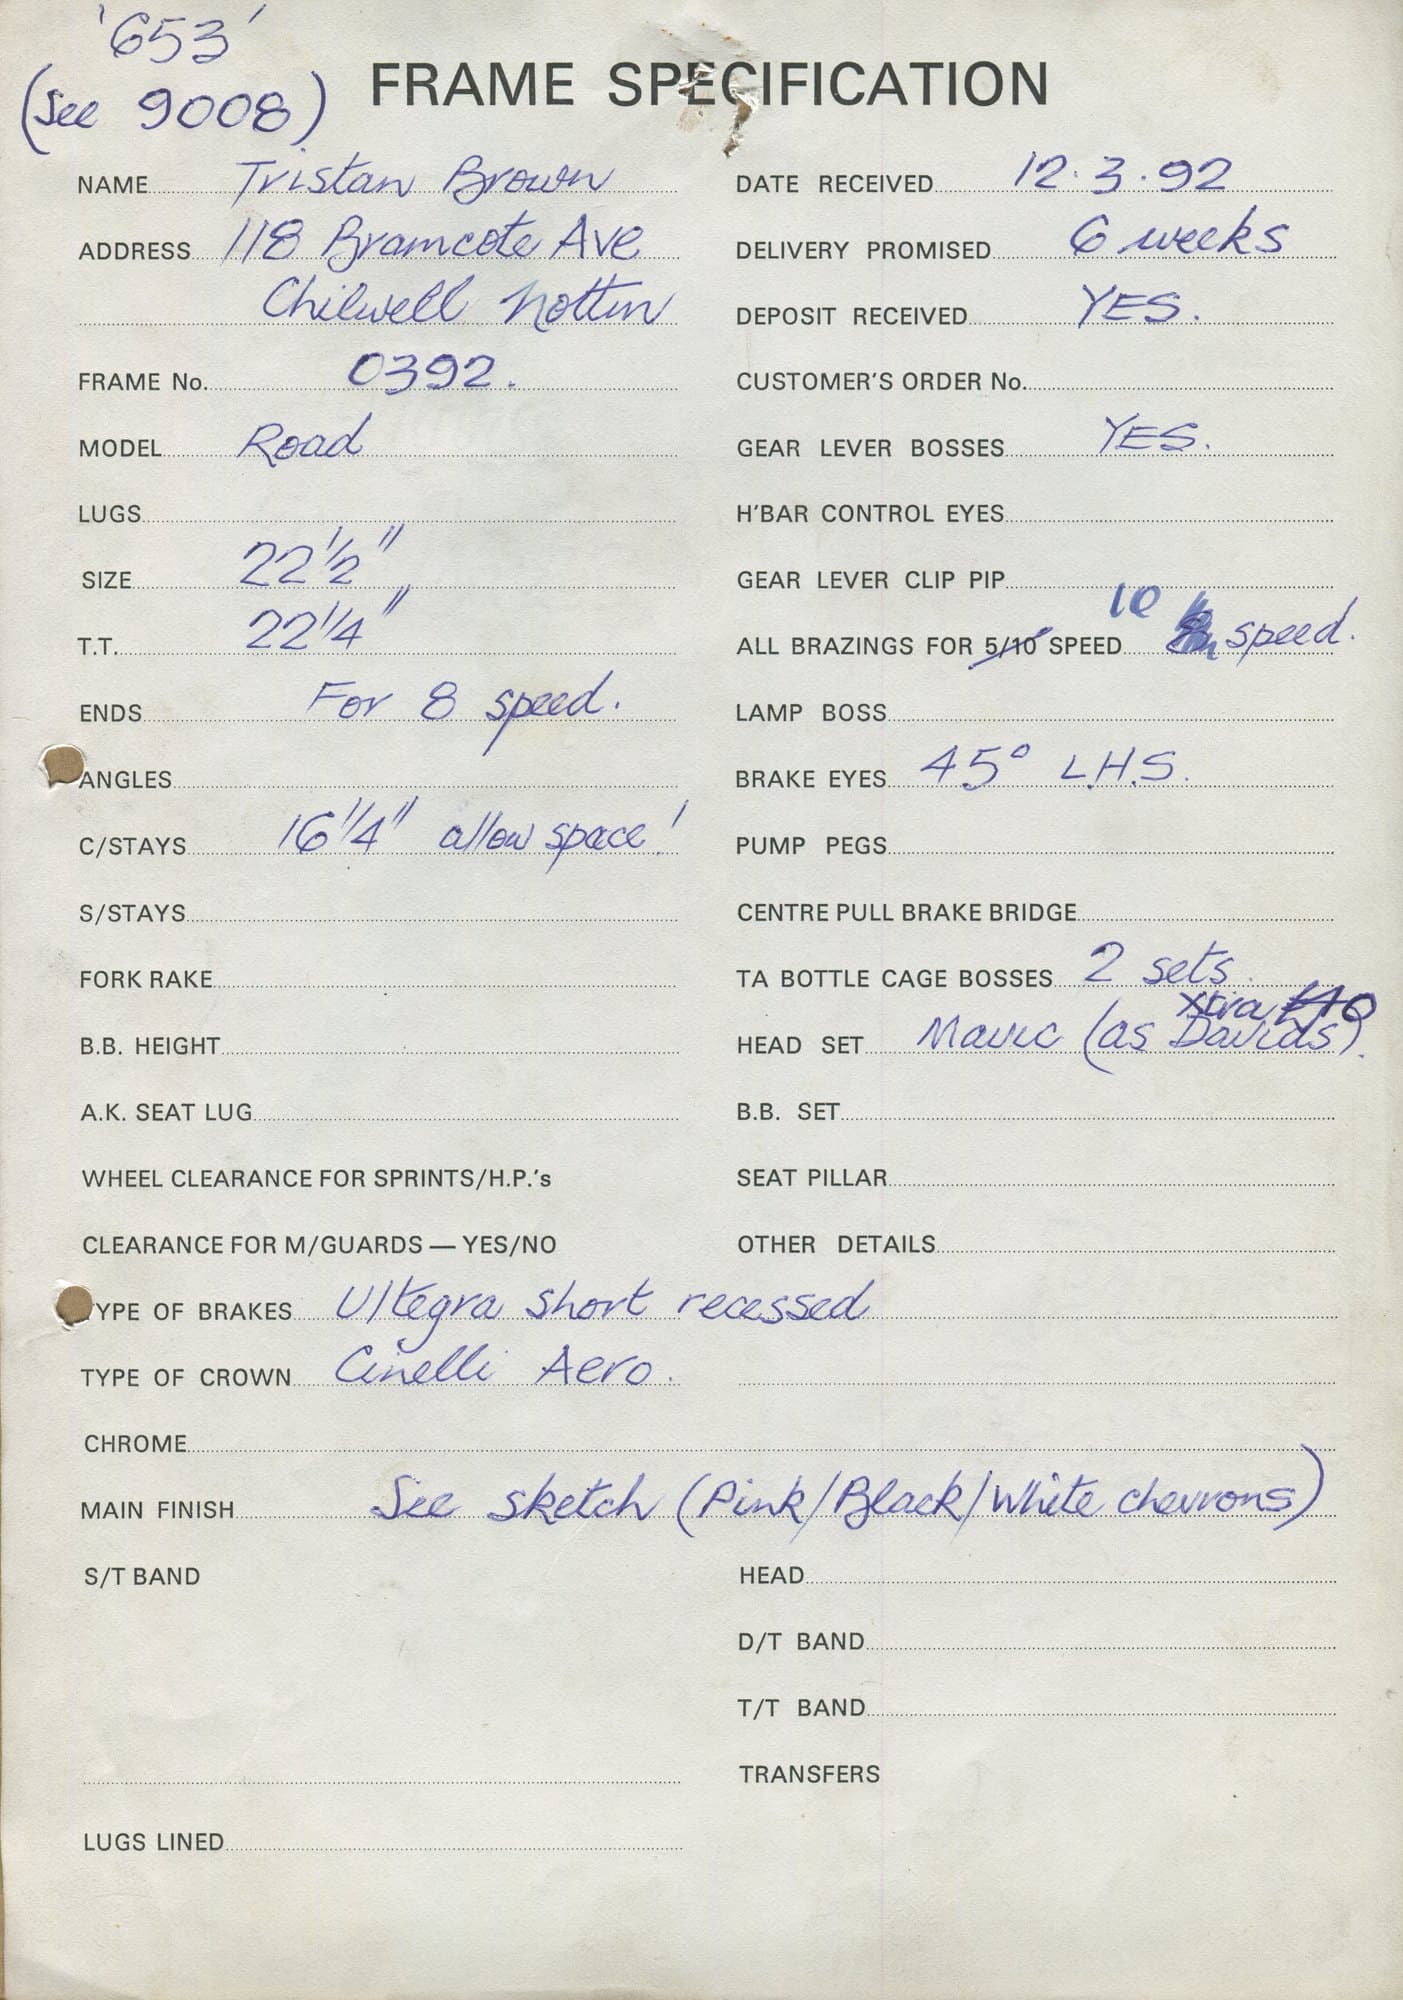 '653'
(See 9008)
FRAME SPECIFICATION
NAME Tristan Brown
ADDRESS 118 Bramcote Ave
Chilwell Nottm
FRAME No. 0392.
MODEL Road
LUGS
SIZE 22 1/2"
T.T. 22 1/4"
ENDS For 8 speed.
ANGLES
C/STAYS 16 1/4" allow space!
S/STAYS
FORK RAKE
B.B. HEIGHT
A.K. SEAT LUG
WHEEL CLEARANCE FOR SPRINTS/H.P.'s
CLEARANCE FOR M/GUARDS — YES/NO
DATE RECEIVED 12.3.92
DELIVERY PROMISED 6 weeks
DEPOSIT RECEIVED YES.
CUSTOMER'S ORDER No.
GEAR LEVER BOSSES YES.
H'BAR CONTROL EYES
GEAR LEVER CLIP PIP
ALL BRAZINGS FOR 5/10 SPEED 10 speed.
LAMP BOSS
BRAKE EYES 45° L.H.S.
PUMP PEGS
CENTRE PULL BRAKE BRIDGE
TA BOTTLE CAGE BOSSES 2 sets
Xtra £10
HEAD SET Mavic (as Davids).
B.B. SET
SEAT PILLAR
OTHER DETAILS
TYPE OF BRAKES Ultegra short recessed
TYPE OF CROWN Cinelli Aero.
CHROME
MAIN FINISH See sketch (Pink/Black/White chevrons)
S/T BAND
LUGS LINED
HEAD
D/T BAND
T/T BAND
TRANSFERS